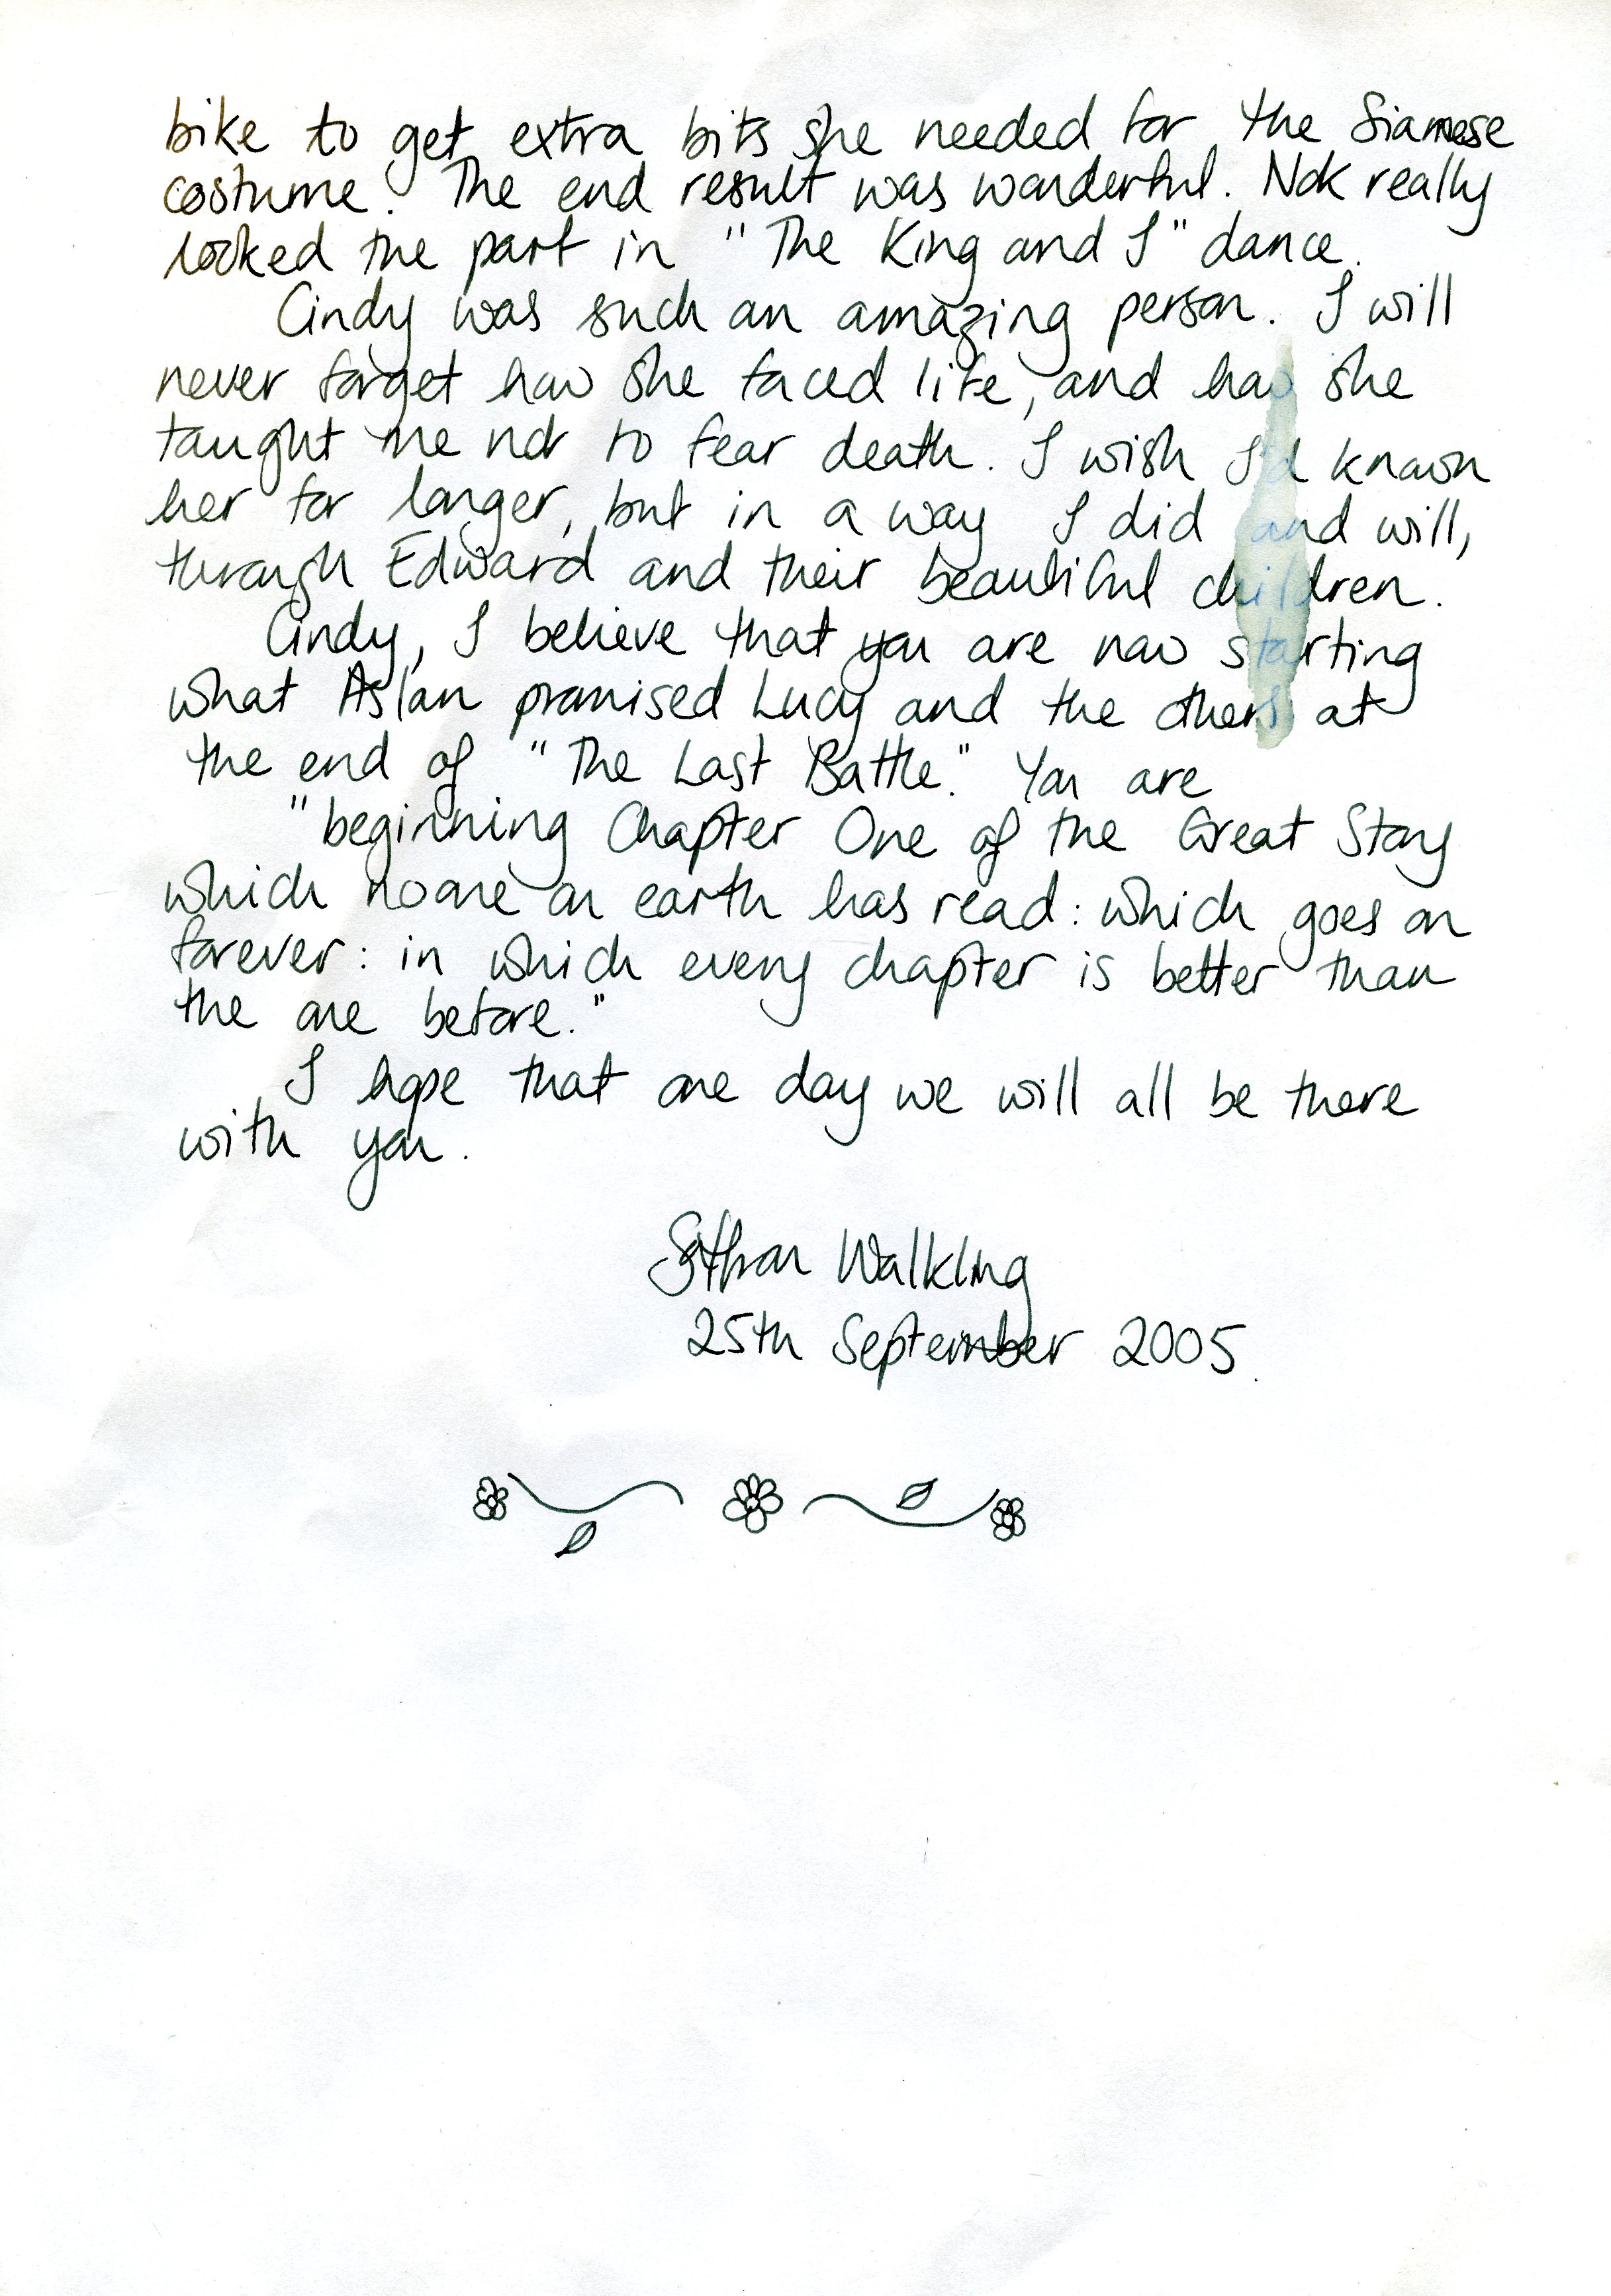 bike to get extra bits she needed for the Siamese
costume. The end result was wonderful. Nok really
looked the part in "The King and I" dance.
Cindy was such an amazing person. I will
never forget how she faced life, and how she
taught me not to fear death. I wish I'd known
her for longer, but in a way I did and will,
through Edward and their beautiful children.
Cindy, I believe that you are now starting
what Aslan promised Lucy and the others at
the end of "The Last Battle." You are
"beginning Chapter One of the Great Story
which no one on earth has read: which goes on
forever: in which every chapter is better than
the one before."
I hope that one day we will all be there
with you.
Walkling
25th September 2005.